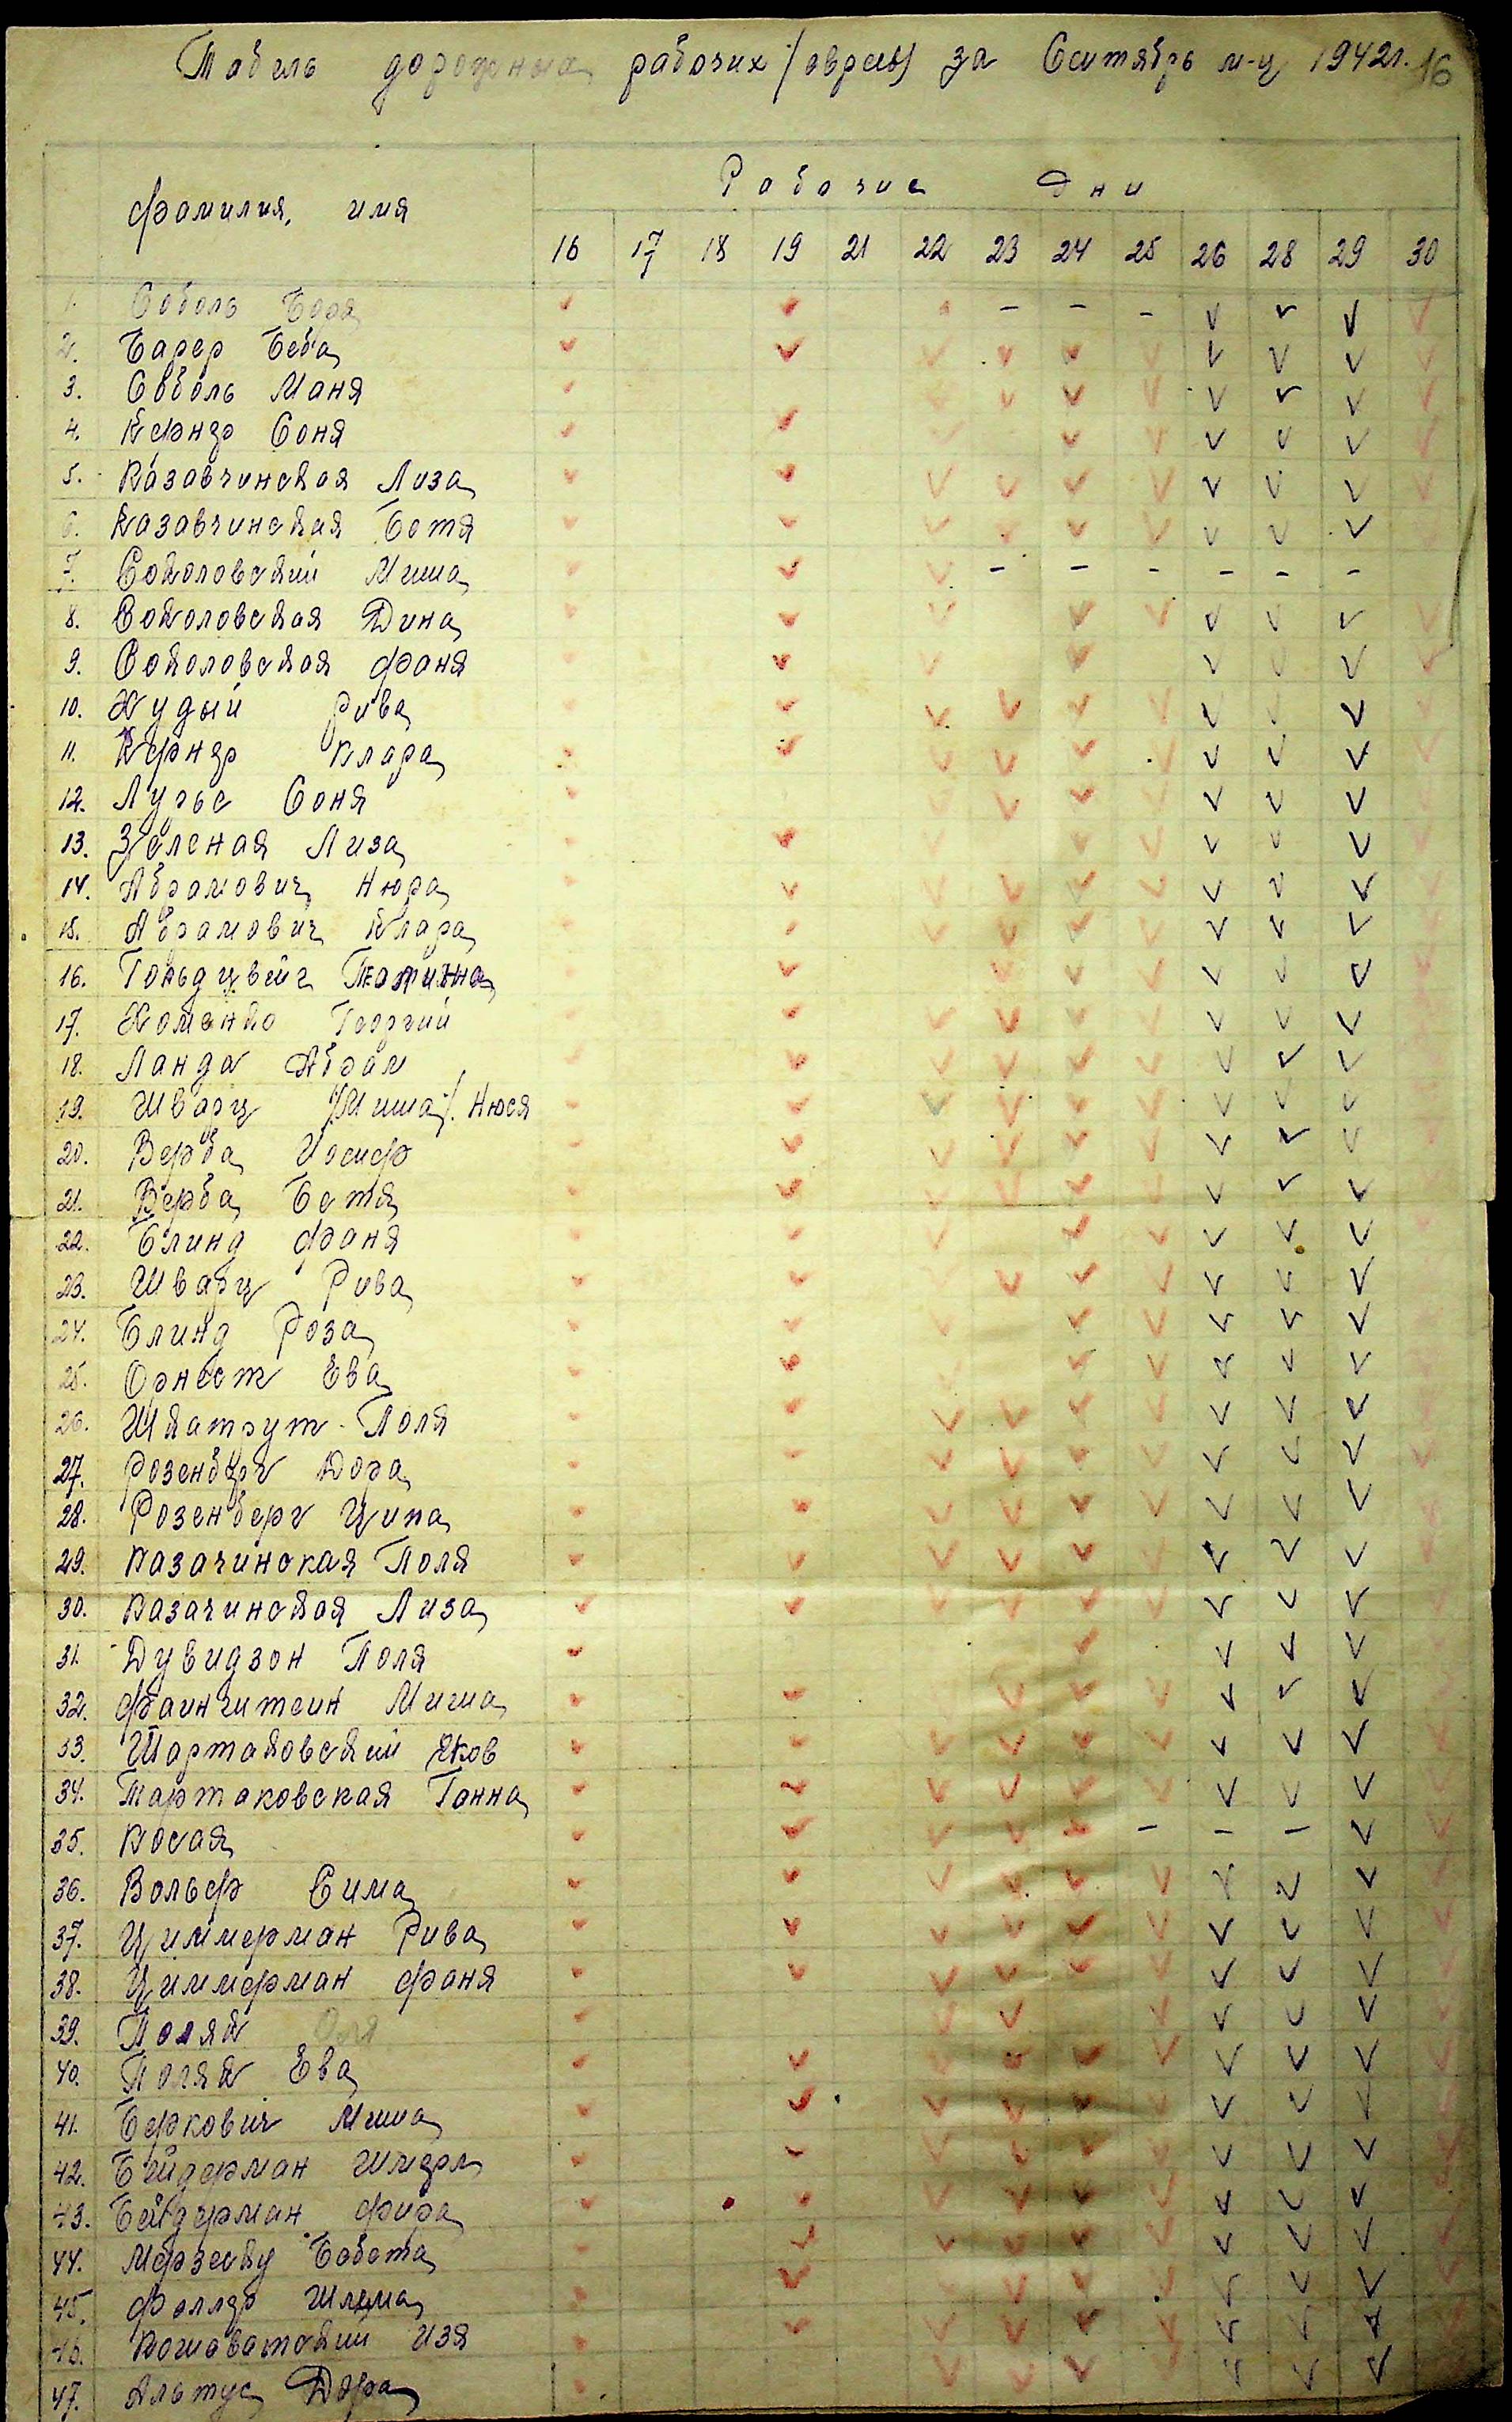 Табель дорожных рабочих /евреи/ за Сентябрь м-ц 1942г. 16
Фамилия, имя
Рабочие дни
16 17 18 19 21 22 23 24 25 26 28 29 30
1. Соболь Бора v v v - - - v v v v
2. Барер Беба v v v v v v v v v v
3. Соболь Маня v v v v v v v v v
4. Кернер Соня v v v v v v v v v
5. Казавчинская Лиза v v v v v v v v v v
6. Казавчинская Бетя v v v v v v v v v
7. Соколовский Миша v v v - - - - - -
8. Соколовская Дина v v v v v v v v v
9. Соколовская Фаня v v v v v v v v
10. Худый Рива v v v v v v v v v v
11. Кернер Клара v v v v v v v v v v
12. Лурье Соня v v v v v v v v
13. Зеленая Лиза v v v v v v v v v
14. Абрамович Нюра v v v v v v v v v v
15. Абрамович Клара v v v v v v v v v v
16. Гольдцвейг v v v v v v v v v
17. Хоменко Георгий v v v v v v v v v
18. Ланда Абрам v v v v v v v v v
19. Шварц /Миша/. Нюся v v v v v v v v v
20. Верба Иосиф v v v v v v v v v
21. Верба Бетя v v v v v v v v v
22. Блинд Фаня v v v v v v v v
23. Шварц Рива v v v v v v v v
24. Блинд Роза v v v v v v v v
25. Орнест Ева v v v v v v v
26. Шкатрут Поля v v v v v v v v v
27. Розенберг Дора v v v v v v v v v v
28. Розенберг Ципа v v v v v v v v v v
29. Казачинская Поля v v v v v v v v v v
30. Казачинская Лиза v v v v v v v v v v
31. Дувидзон Поля v v v v v
32. Файнштейн Миша v v v v v v v v
33. Тартаковский Яков v v v v v v v v v v
34. Тартаковская Ганна v v v v v v v v v v
35. Косая v v v v v - - - v v
36. Вольф Сима v v v v v v v v v v
37. Циммерман Рива v v v v v v v v v v
38. Циммерман Фаня v v v v v v v v v v
39. Поляк Оля v v v v v v v v
40. Поляк Ева v v v v v v v v v v
41. Беркович Миша v v v v v v v v v v
42. Бейдерман Шмерл v v v v v v v v v v
43. Бейдерман Фира v v v v v v v v v v
44. Бабета v v v v v v v v v v
45. Феллер Шлема v v v v v v v v v
46. Кошаватский Изя v v v v v v v v v
47. Альтус Дора v v v v v v v v